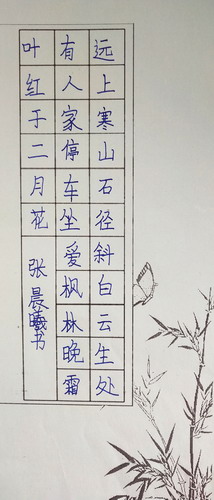 远上寒山石径斜白云生处
有人家停车坐爱枫林晚霜
叶红于二月花 张晨曦书